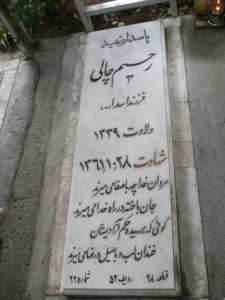 پاسدار شهید
رحیم چالی
فرزند اسدا...
ولادت ۱۳۳۹
شهادت ۱۳۶۱,۱۰,۲۸
مردان خدا چه باصفا می میرند
جان باخته در راه خدا می میرند
گوئی که رسیده حکم آزادیشان
خندان لب و با میل و رضا می میرند
قطعه ۲۸ ردیف ۵۲ شماره ۲۲